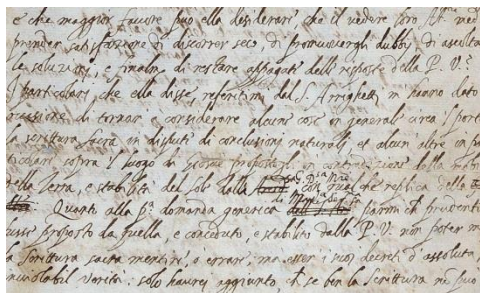 e che maggior favore può ella desiderare, che il vedere loro Alt.e med
prender satisfazione di discorrer seco, di promuovergli dubbi, di ascolta
le soluzioni, e finalm. di restare appagate delle risposte della P. V.a
I particolari, che ella disse referitimi dal S. Arrighetti m hanno dato
casione di tornar a considerare alcune cose in generale circa il port
la scrittura sacra in dispute di conclusioni naturali, et alcun'altre in pa
ticolari sopra il luogo di Giosuè propostogli in contradizione della mobi
della Terra, e stabilità del Sole dalla con qualche replica della
Quanto alla p.a domanda generica di Mad. parmi ch prudenti
fusse proposto da quella e conceduto, e stabilito dalla P. V. non poter m
la scrittura sacra mentire, o errare, ma esser i suoi decreti d'assoluta,
inviolabil verità. solo haurei aggiunto, ch se ben la scrittura nō può